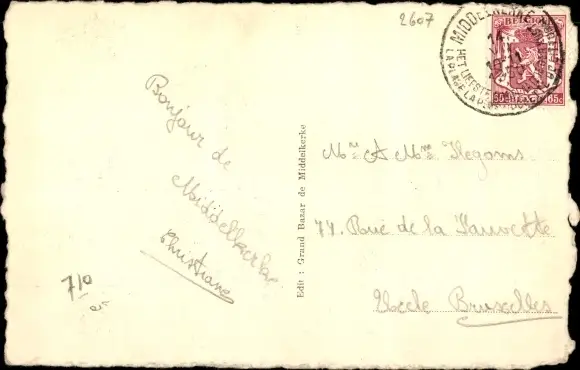 2607
MIDDELKERKE
BELGIQUE
HET LIEFSTE
LA PLAGE LA PLUS
65c BELGIE 65c
Bonjour de
Middelkerke
Christiane
7/0
Edit : Grand Bazar de Middelkerke
Mr & Mme Hegoms
77. Rue de la Fauvette
Uccle Bruxelles